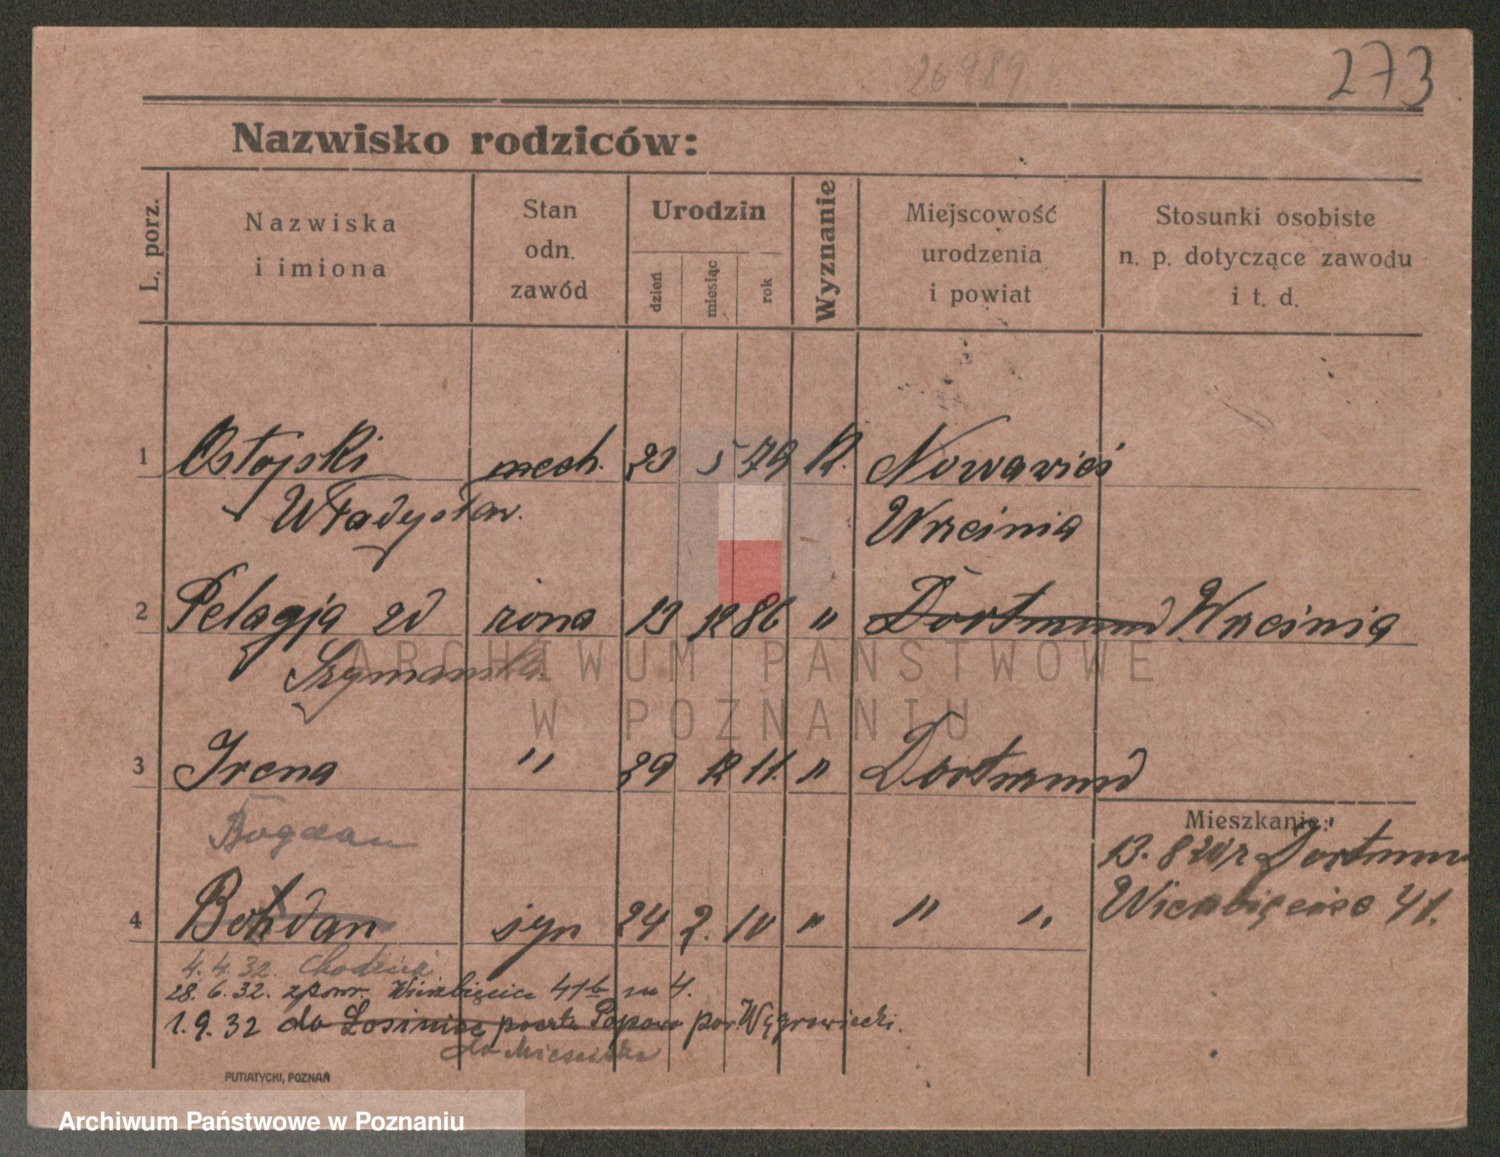 20989
273
Nazwisko rodziców:
L. porz.
Nazwiska
i imiona
Stan
odn.
zawód
Urodzin
dzień
miesiąc
rok
Wyznanie
Miejscowość
urodzenia
i powiat
Stosunki osobiste
n. p. dotyczące zawodu
i t. d.
1 Ostojski mech. 23 5 79 K. Nowawieś
Władysław. Wrześnią
2 Pelagja zd żona 13 12 86 " Dortmund Września
Szymanska.
ARCHIWUM PAŃSTWOWE
W POZNANIU
3 Irena " 29 12 11. " Dortmund
Mieszkanie:
Bogdan
13. 8 Dortmun
4 Bohdan syn 24 2. 10 " " "
Wierzbięcice 41.
4.4.32. Chodzież
28.6.32. zpowr. Wierzbięcice 41b m 4.
1.9.32 do poczta Popowo pow. Wągrowiecki.
do Mieściska
PUTIATYCKI, POZNAŃ
Archiwum Państwowe w Poznaniu